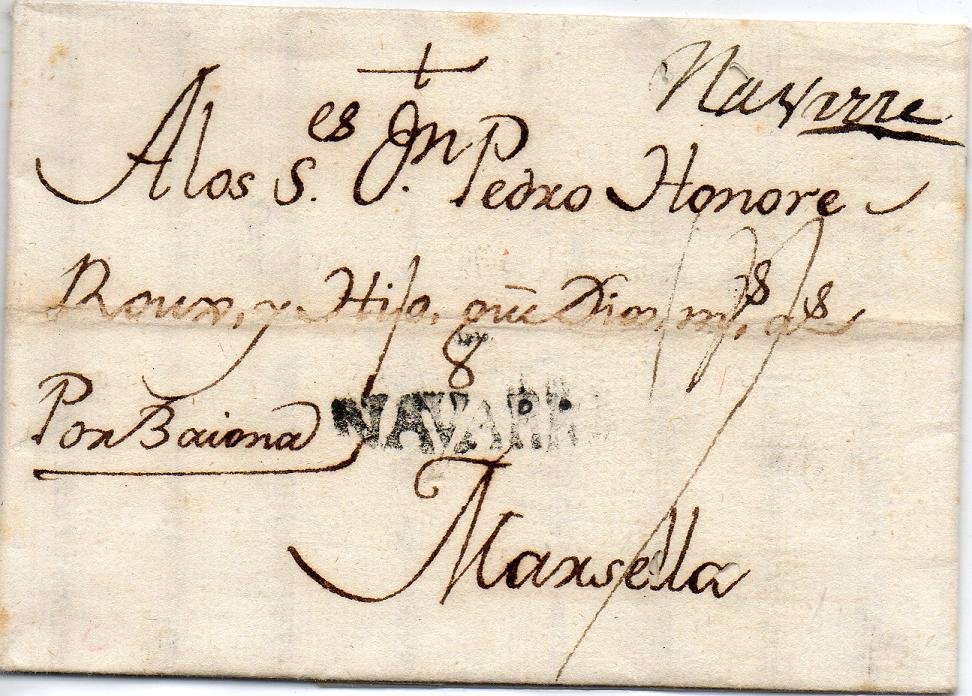 Navarre
A los S.es Jn Pedro Honore
Roux, y Hijo, que Dios m.s a.s
8
Por Baiona
NAVARR
Marsella